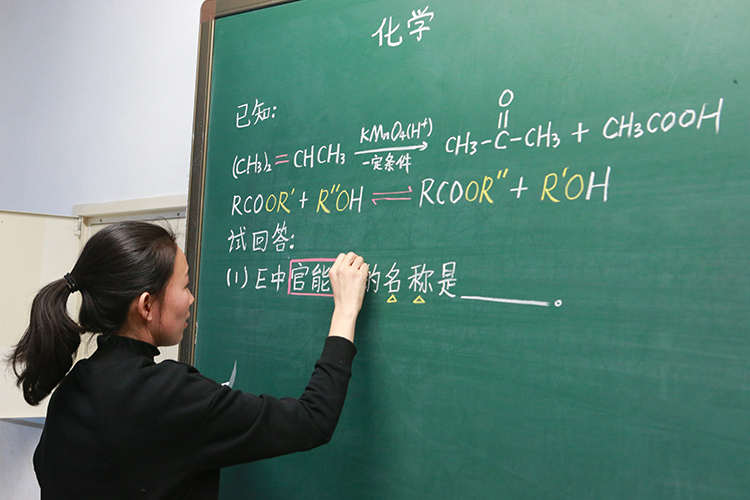 化学
已知:
(CH₃)₂=CHCH₃ KMnO₄(H⁺) 一定条件 → CH₃-C-CH₃ + CH₃COOH
O
RCOOR' + R''OH ⇌ RCOOR'' + R'OH
试回答:
(1) E中官能的名称是______。